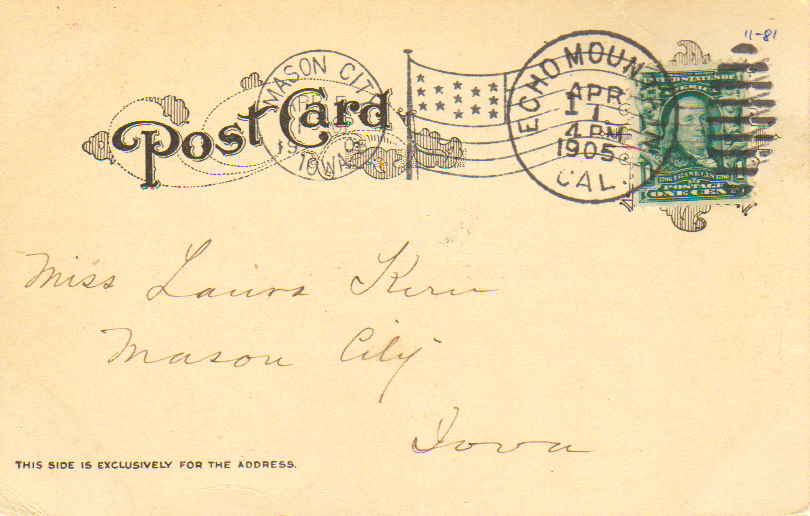 11-81
MASON CITY
IOWA
Post Card
ECHO MOUN
APR
11
4 PM
1905
CAL.
POSTAGE
ONE CENT
Miss Laura Kern
Mason City
Iowa
THIS SIDE IS EXCLUSIVELY FOR THE ADDRESS.